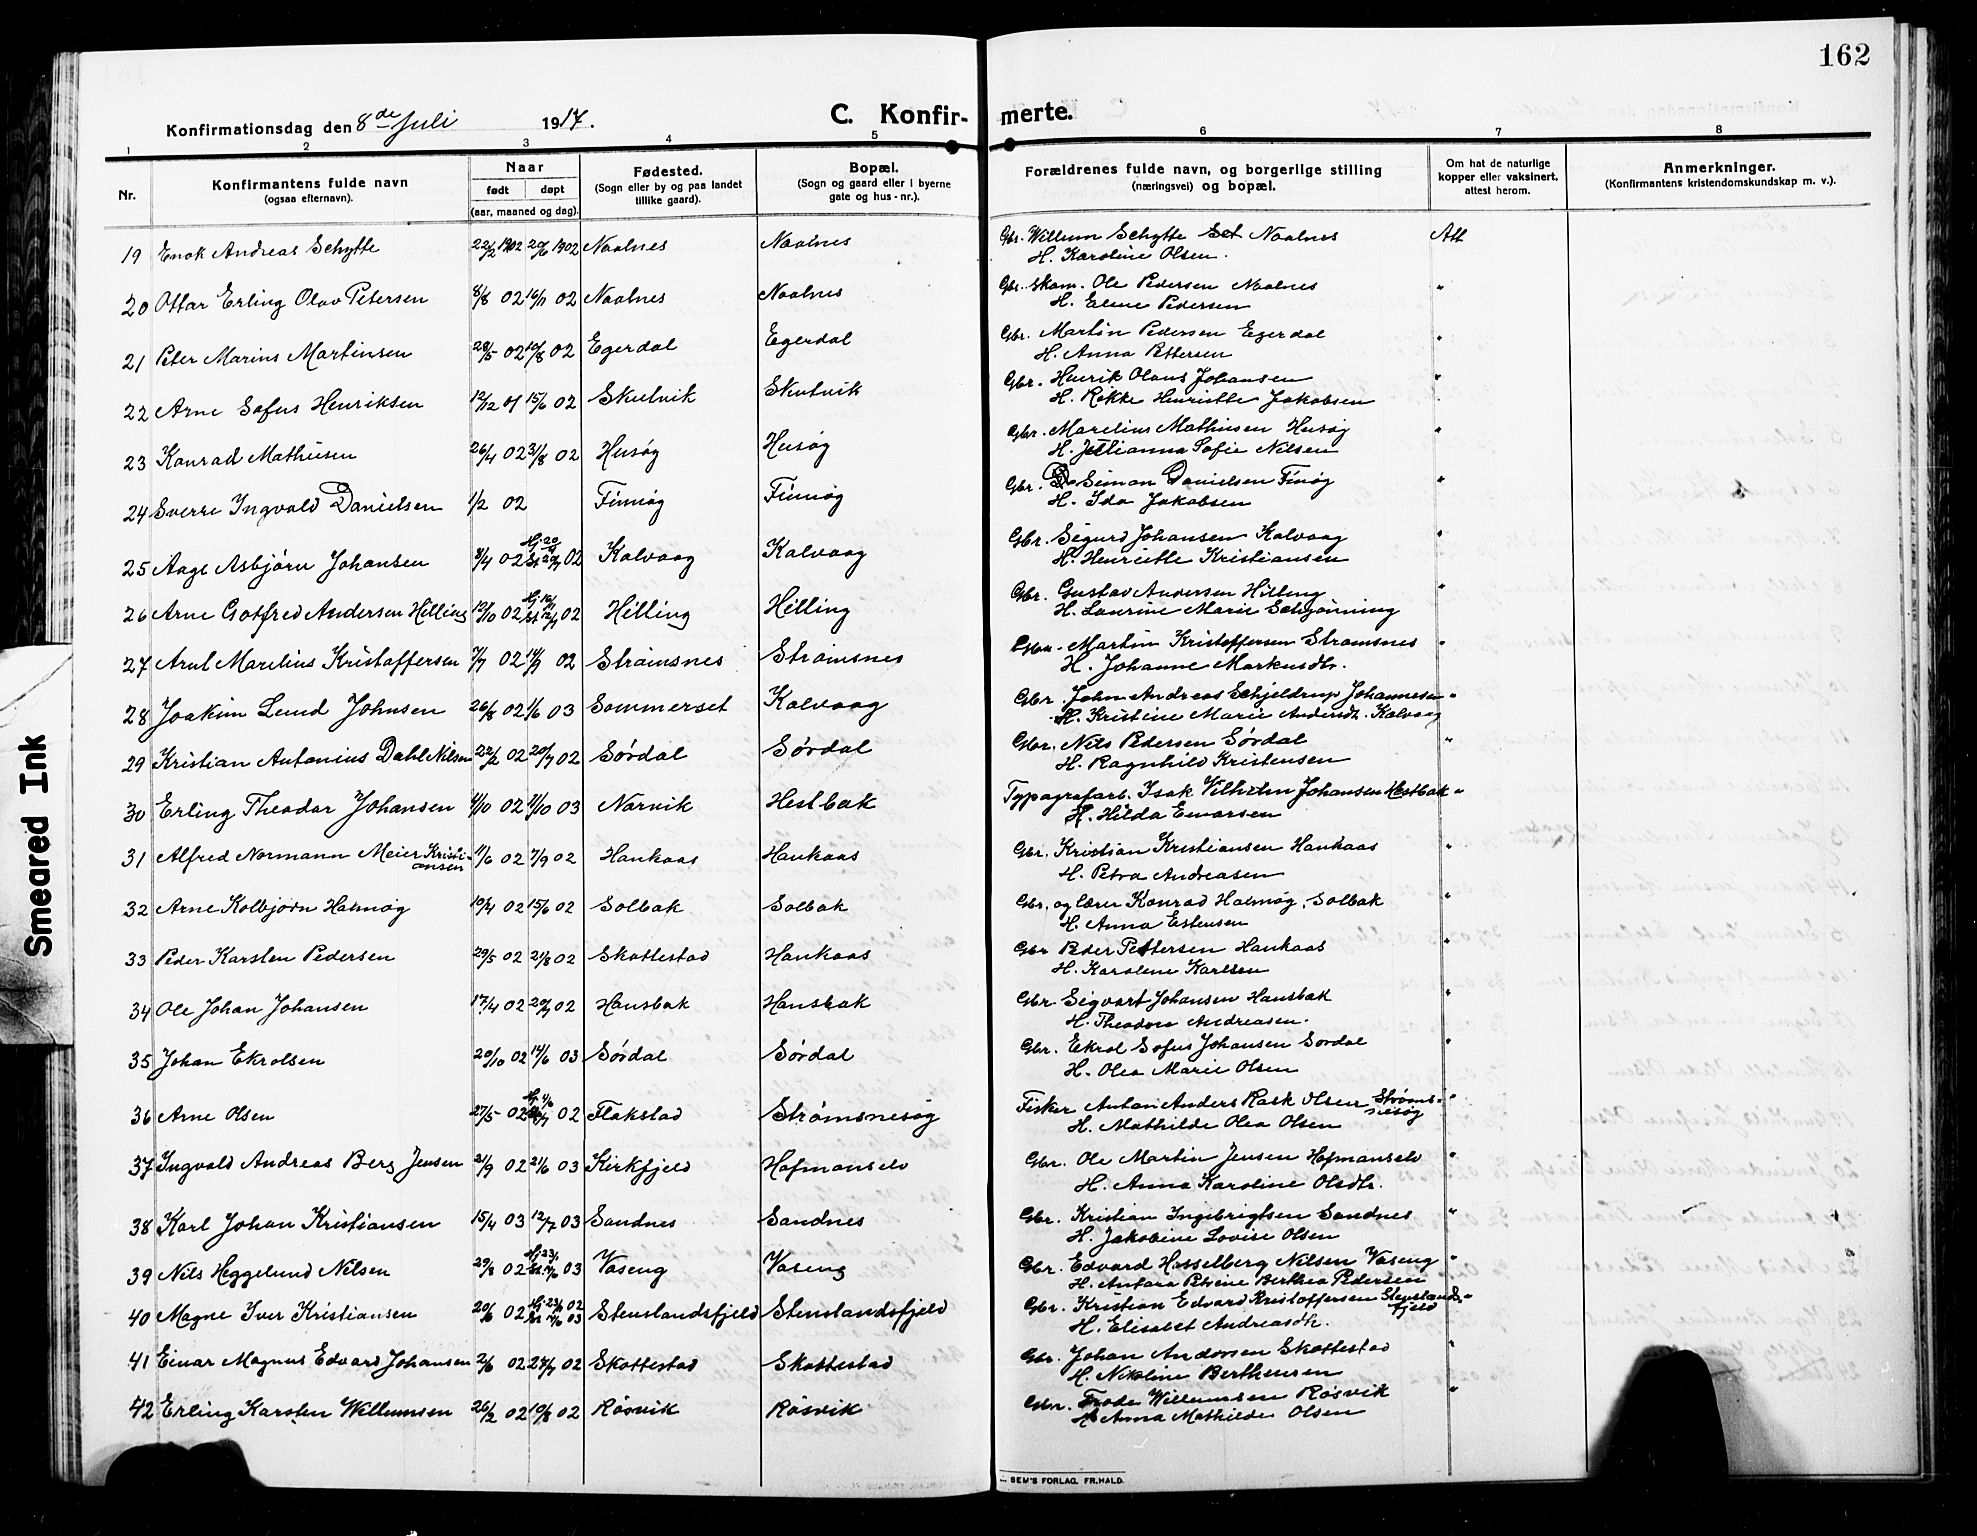 162
Konfirmationsdag den 8de Juli 1917. C. Konfirmerte.
1 2 3 4 5 6 7 8
Nr. Konfirmantens fulde navn (ogsaa efternavn). Naar født døpt (aar, maaned og dag). Fødested. (Sogn eller by og paa landet tillike gaard). Bopæl. (Sogn og gaard eller i byerne gate og hus-nr.). Forældrenes fulde navn, og borgerlige stilling (næringsvei) og bopæl. Om hat de naturlige kopper eller vaksinert, attest herom. Anmerkninger. (Konfirmantens kristendomskundskap m. v.).
19 Enok Andreas Schytte 22/2 1902 20/6 1902 Naalnes Naalnes Gbr. Willum Schytte Naalnes Att
H. Karoline Olsen.
20 Ottar Erling Olav Petersen 8/8 02 16/11 02 Naalnes Naalnes Gbr. Skom. Ole Pedersen Naalnes "
H. Eline Pedersen
21 Peter Marius Martinsen 28/5 02 10/8 02 Egerdal Egerdal Gbr. Martin Pedersen Egerdal "
H. Anna Pettersen
22 Arne Sofus Henriksen 12/12 01 15/6 02 Skutvik Skutvik Gbr. Henrik Olaus Johansen "
H. Rikke Henriette Jakobsen
23 Konrad Mathisen 26/4 02 31/8 02 Husøy Husøy Gbr. Marelius Mathisen Husøy "
H. Julianna Sofie Nilsen
24 Sverre Ingvald Danielsen 1/2 02 Finnøy Finnøy Gbr. Simon Danielsen Finøy "
H. Ida Jakobsen
25 Aage Asbjørn Johansen 8/4 02 02 Kalvaag Kalvaag Gbr. Sigurd Johansen Kalvaag "
H. Henriette Kristiansen
26 Arne Gotfred Andersen Hilling 12/10 02 02 Hilling Hilling Gbr. Gustav Andersen Hilling "
H. Laurine Marie Schjønning
27 Arnt Marelius Kristoffersen 7/7 02 02 Strømsnes Strømsnes Gbr. Martin Kristoffersen Strømsnes "
H. Johanne Markusdtr.
28 Joakim Lund Johnsen 26/8 02 1/6 03 Sommerset Kalvaag Gbr. John Andreas Schjeldrup Johannesen "
H. Kristine Marie Andersdtr. Kalvaag
29 Kristian Antonius Dahl Nilsen 22/2 02 20/7 02 Sørdal Sørdal Gbr. Nils Pedersen Sørdal "
H. Ragnhild Kristensen
30 Erling Theodor Johansen 02 03 Narvik Hestbak Typografarb. Isak Vilhelm Johansen Hestbak "
H. Hilda Einarsen
31 Alfred Normann Meier Kristiansen 11/6 02 7/9 02 Haukaas Haukaas Gbr. Kristian Kristiansen Haukaas "
H. Petra Andreasen
32 Arne Kolbjørn Halmøy 10/4 02 15/6 02 Solbak Solbak Gbr. og lærer Konrad Halmøy, Solbak "
H. Anna Estensen
33 Peder Karsten Pedersen 29/5 02 21/8 02 Skottestad Haukaas Gbr Peder Pettersen Haukaas "
H. Karolene Karlsen
34 Ole Johan Johansen 17/4 02 20/7 02 Hansbak Hansbak Gbr. Sigvart Johansen Hansbak "
H. Theodora Andreasen.
35 Johan Ekrolsen 20/10 02 14/6 03 Sørdal Sørdal Gbr. Ekrol Sofus Johansen Sørdal "
H. Olea Marie Olsen
36 Arne Olsen 27/5 02 02 Flakstad Strømsnesøg Fisker Anton Anders Rask Olsen Strømsnesøg "
H. Mathilde Olea Olsen
37 Ingvald Andreas Berg Jensen 21/9 02 21/6 03 Kirkfjeld Hofmanselv Gbr. Ole Martin Jensen Hofmanselv "
H. Anna Karoline Olsdtr.
38 Karl Johan Kristiansen 15/4 03 12/7 03 Sandnes Sandnes Gbr. Kristian Ingebrigtsen Sandnes "
H. Jakobine Lovise Olsen
39 Nils Heggelund Nilsen 29/8 02 03 Vaseng Vaseng Gbr. Edvard Hesselberg Nilsen Vaseng "
H. Antara Petrine Berthea Pedersen
40 Magne Iver Kristiansen 20/6 02 Stenslandsfjeld Stenslandsfjeld Gbr. Kristian Edvard Kristoffersen Stenslandsfjeld "
H. Elisabet Andreasdtr.
41 Einar Magnus Edvard Johansen 2/6 02 27/7 02 Skottestad Skottestad Gbr. Johan Andersen Skottestad "
H. Nikoline Bertheusen
42 Erling Karsten Willumsen 26/2 02 10/8 02 Røsvik Røsvik Gbr. Frode Willumsen Røsvik "
H Anna Mathilde Olsen
SEM'S FORLAG. FR.HALD.
Smeared Ink